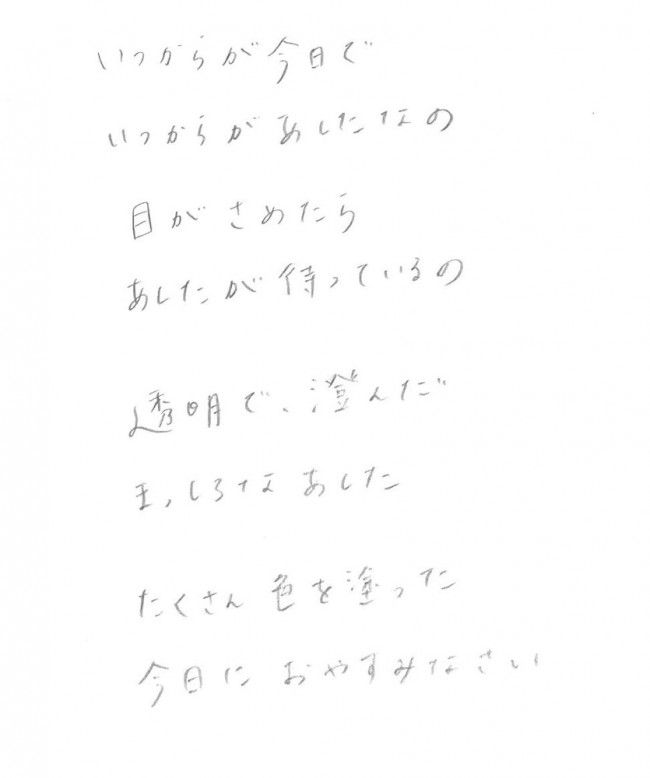 いつからが今日で
いつからがあしたなの
目がさめたら
あしたが待っているの
透明で、澄んだ
まっしろなあした
たくさん色を塗った
今日におやすみなさい